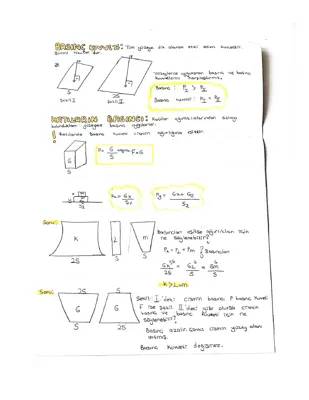 BASINÇ KUVVETİ: Tüm yüzeye dik olarak etki eden kuvvettir.
Birimi Newton'dur.
S
Şekil I
2S
Şekil II
yüzeylerine uygulanan basınç ve basınç
kuvvetlerini karşılaştırınız.
Basınç : P₁ > P₂
Basınç kuvveti :
KATILARIN BASINCI: Katılar ağırlıklarından dolayı
bulundukları yüzeye basınç uygularlar.
! Katılarda Basınç kuvveti cismin ağırlığına eşittir.
G
S
P = G/S F=G
S₂
Soru:
K
L
M
2S
S
S
Basınçları eşitse ağırlıkları için
ne söylenebilir?
Pₖ = P_L = Pₘ } Basınçları
K>L=M
Soru:
2S
S
G
G
S
2S
Şekil I'deki cismin basıncı P basınç kuvveti
F ise şekil II'deki gibi olursa cismin
basıncı ve basınç kuvveti için ne
söylenebilir?
Basınç azalır çünkü cismin yüzey alanı
artmış.
Basınç kuvveti değişmez.